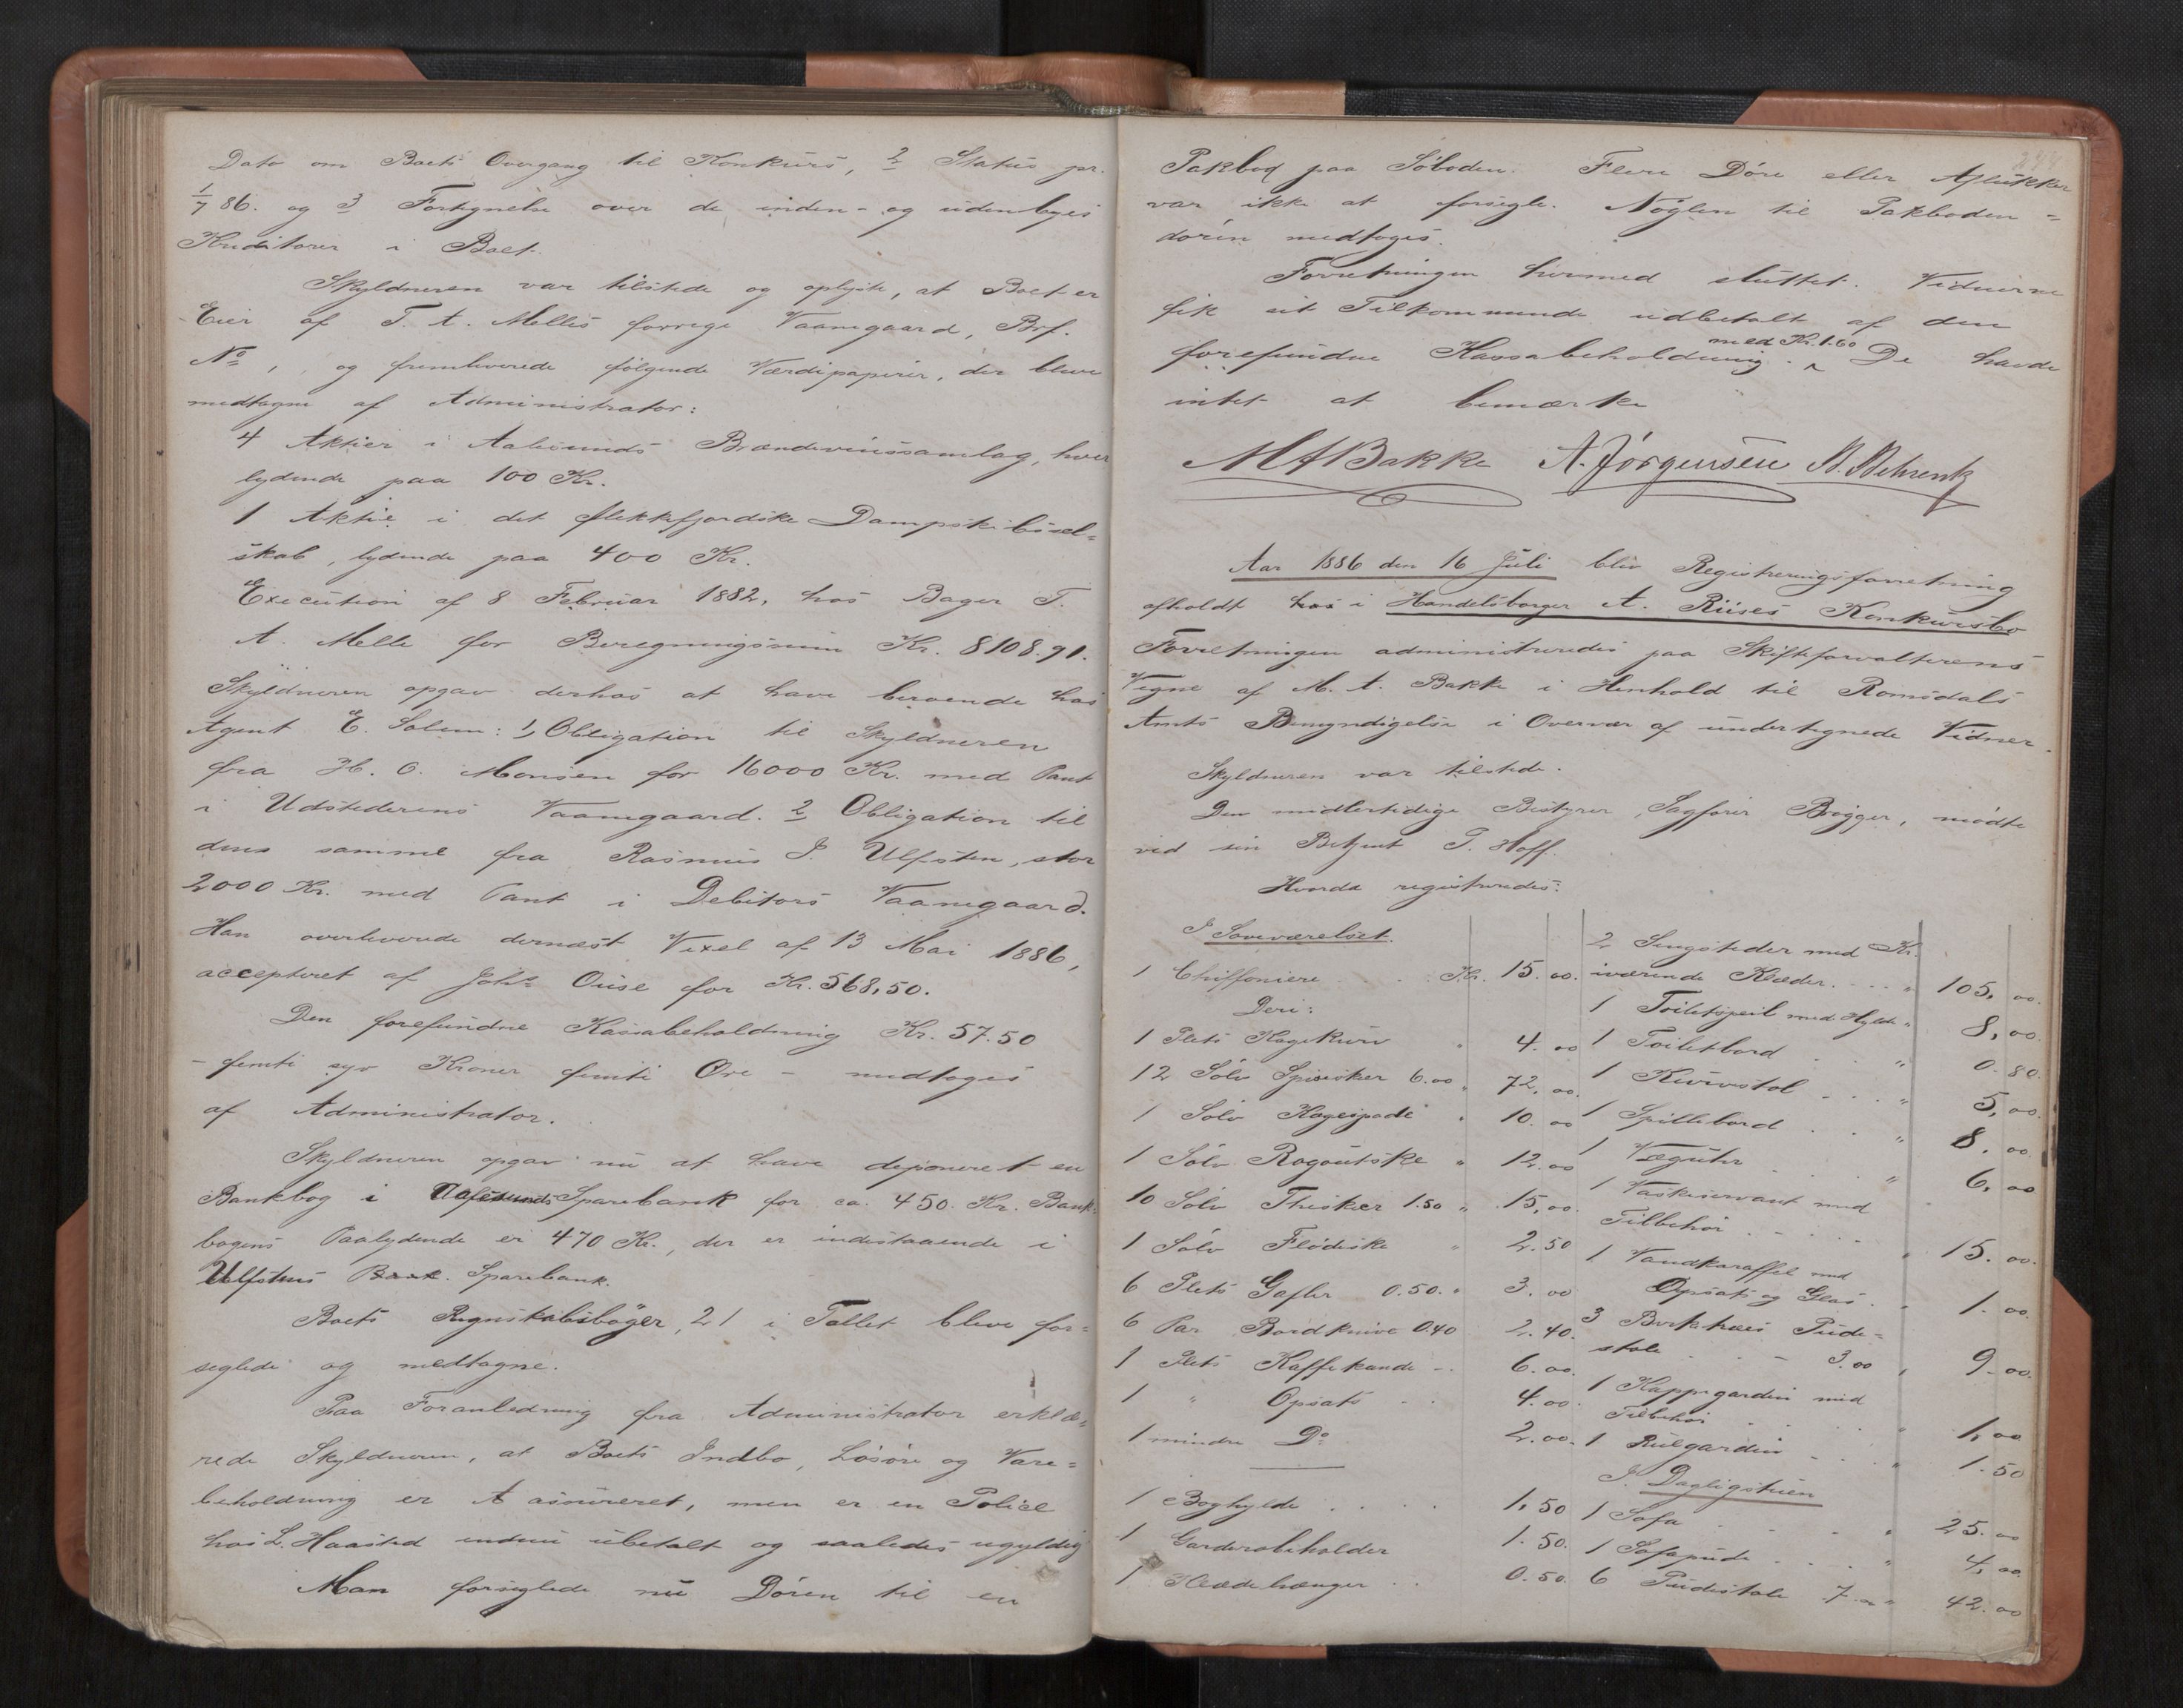 Dato om Boets Overgang til Konkurs, 2 Status pr.
1/7 86. og 3 Fortegnelse over de inden- og udenbyes
Kreditorer i Boet.
Skyldneren var tilstede og oplyste, at Boet er
Eier af T. A. Melles forrige Vaanegaard, Brf.
No , og fremleverede følgende Værdipapirer, der bleve
medtagne af Administrator:
4 Aktier i Aalesunds Brændevinssamlag, hver
lydende paa 100 Kr.
1 Aktie i det flekkefjordske Dampskibssel=
skab, lydende paa 400 Kr.
Execution af 8 Februar 1882, hos Bager T.
A. Melle for Beregningssum Kr. 8108.91.
Skyldneren opgav derhos at have beroende hos
Agent E. Solem: 1, Obligation til Skyldneren
fra H. O. Monsen for 16000 Kr. med Pant
i Udstederens Vaanegaard. 2 Obligation til
dens samme fra Rasmus J. Ulfsten, stor
2000 Kr. med Pant i Debitors Vaanegaard.
Han overleverede dernæst Vexel af 13 Mai 1886,
accepteret af Johs Ouse for Kr. 568,50.
Den forefundne Kassabeholdning Kr. 57.50
- femti syv Kroner femti Øre - medtoges
af Administrator.
Skyldneren opgav nu at have deponeret en
Bankbog i Aalesunds Sparebank for ca. 450. Kr. Bank=
bogens Paalydende er 470 Kr., der er indestaaende i
Ulfstens Bank. Sparebank.
Boets Regnskabsbøger, 21 i Tallet bleve for=
seglede og medtagne.
Paa Foranledning fra Administrator erklæ=
rede Skyldneren, at Boets Indbo, Løsøre og Vare=
beholdning er Assureret, men er en Police
hos L. Haasted endnu ubetalt og saaledes ugyldig
Man forseglede nu Døren til en
Pakbod paa Søboden. Flere Døre eller Aflukker
var ikke at forsegle. Nøglen til Pakboden=
døren medtoges.
Forretningen hermed sluttet. Vidnerne
fik sit Tilkommende udbetalt af den
forefundne Kassabeholdning med Kr. 1.60. De havde
intet at bemærke
M A Bakke A. Jørgensen B. Behrentz
Aar 1886 den 16 Juli blev Registreringsforretning
afholdt hos i Handelsborger A. Riises Konkursbo
Forretningen administreredes paa Skifteforvalterens
Vegne af M. A. Bakke i Henhold til Romsdals
Amts Bemyndigelse i Overvær af undertegnede Vidner.
Skyldneren var tilstede.
Den midlertidige Bestyrer, Sagfører Brøgger, mødte
ved sin Betjent P. Hoff.
Hvorda registreredes:
I Soveværelset.
1 Chiffoniere . . . Kr. 15.00.
Deri:
1 Plets Kagekurv " 4.00
12 Sølv Spiseskeer 6.00 " 72.00.
1 Sølv Kagespade " 10.00
1 Sølv Ragoutske " 12.00
10 Sølv Theskeer 1.50 " 15,00.
1 Sølv Flødeske " 2.50
6 Plets Gafler 0.50. " 3.00
6 Par Bordknive 0.40 2.40.
1 Plets Kaffekande - . 6.00.
1 " Opsats - . 4.00.
1 mindre Do 2.00.
1 Boghylde . . . . 1,50
1 Garderobeholder 1.50.
1 Klædehænger . . 0.50.
2 Sengsteder med Kr.
iværende Klæder. . . . " 105,00.
1 Toiletspeil med Hylde " 8,00
1 Toiletbord . . " 0.80.
1 Kurvstol . . . " 5,00.
1 Spillebord . . " 8.00
1 Væguhr . . " 6,00
1 Vaskeservant med
Tilbehør . . . . " 15.00.
1 Vandkaraffel med
Opsats og Glas . " 1.00.
3 Birketræs Pude=
stole . . - 3.00 " 9.00.
1 Kappegardin med
Tilbehør . . . " 1,00
1 Rulgardin . . . " 1.50
I Dagligstuen
1 Sofa . . . . " 25.00
1 Sofapude . . . " 4,00.
6 Pudestole 7.00 " 42.00